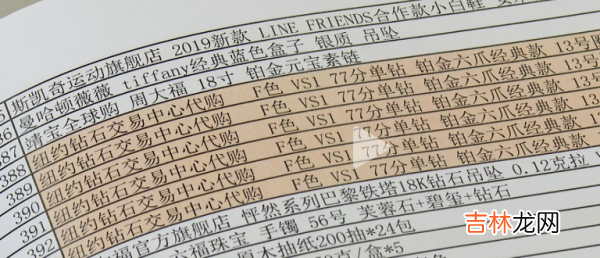 5 斯凯奇运动旗舰店 2019新款 LINE FRIENDS合作款小白鞋
86 曼哈顿薇薇 tiffany经典蓝色盒子 银质 吊坠
387 靖宝全球购 周大福 18寸 铂金元宝素链
388 纽约钻石交易中心代购 F色 VS1 77分单钻 铂金六爪经典款 13号
389 纽约钻石交易中心代购 F色 VS1 77分单钻 铂金六爪经典款 13号
390 纽约钻石交易中心代购 F色 VS1 77分单钻 铂金六爪经典款 13号
391 纽约钻石交易中心代购 F色 VS1 77分单钻 铂金六爪经典款 13号
392 纽约钻石交易中心代购 F色 VS1 77分单钻 铂金六爪经典款 13号
福官方旗舰店 怦然系列巴黎铁塔18K钻石吊坠 0.12克拉
六福珠宝 手镯 56号 芙蓉石+碧玺+钻石
原木抽纸200抽*24包
/盒*5
吉林龙网